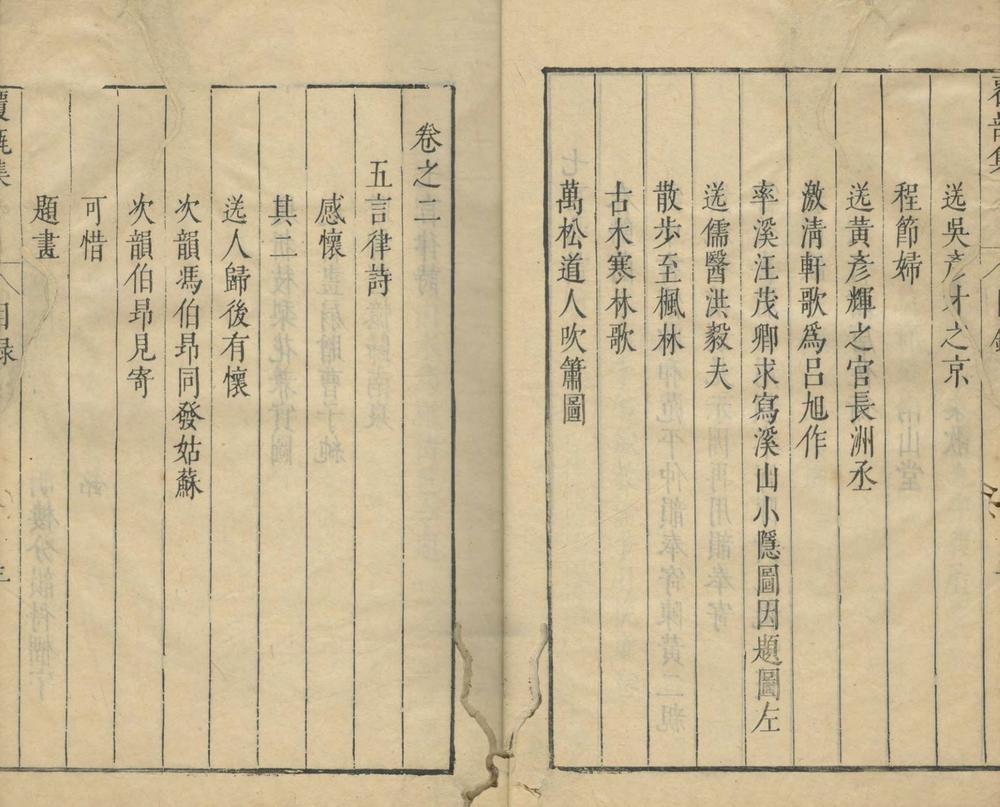 送吳彥才之京
程節婦
送黃彥輝之官長洲丞
激清軒歌爲呂旭作
率溪汪茂卿求寫溪山小隱圖因題圖左
送儒醫洪毅夫
散步至楓林
古木寒林歌
萬松道人吹簫圖
卷之二
五言律詩
感懷
其二
送人歸後有懷
次韻馮伯昻同發姑蘇
次韻伯昻見寄
可惜
題畫
覆瓿集
目錄